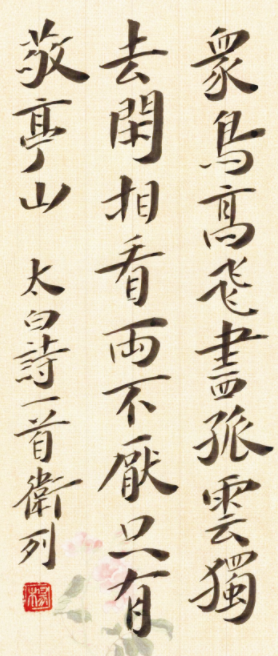 衆鳥高飛盡孤雲獨
去閑相看両不厭只有
敬亭山 太白詩一首衛列